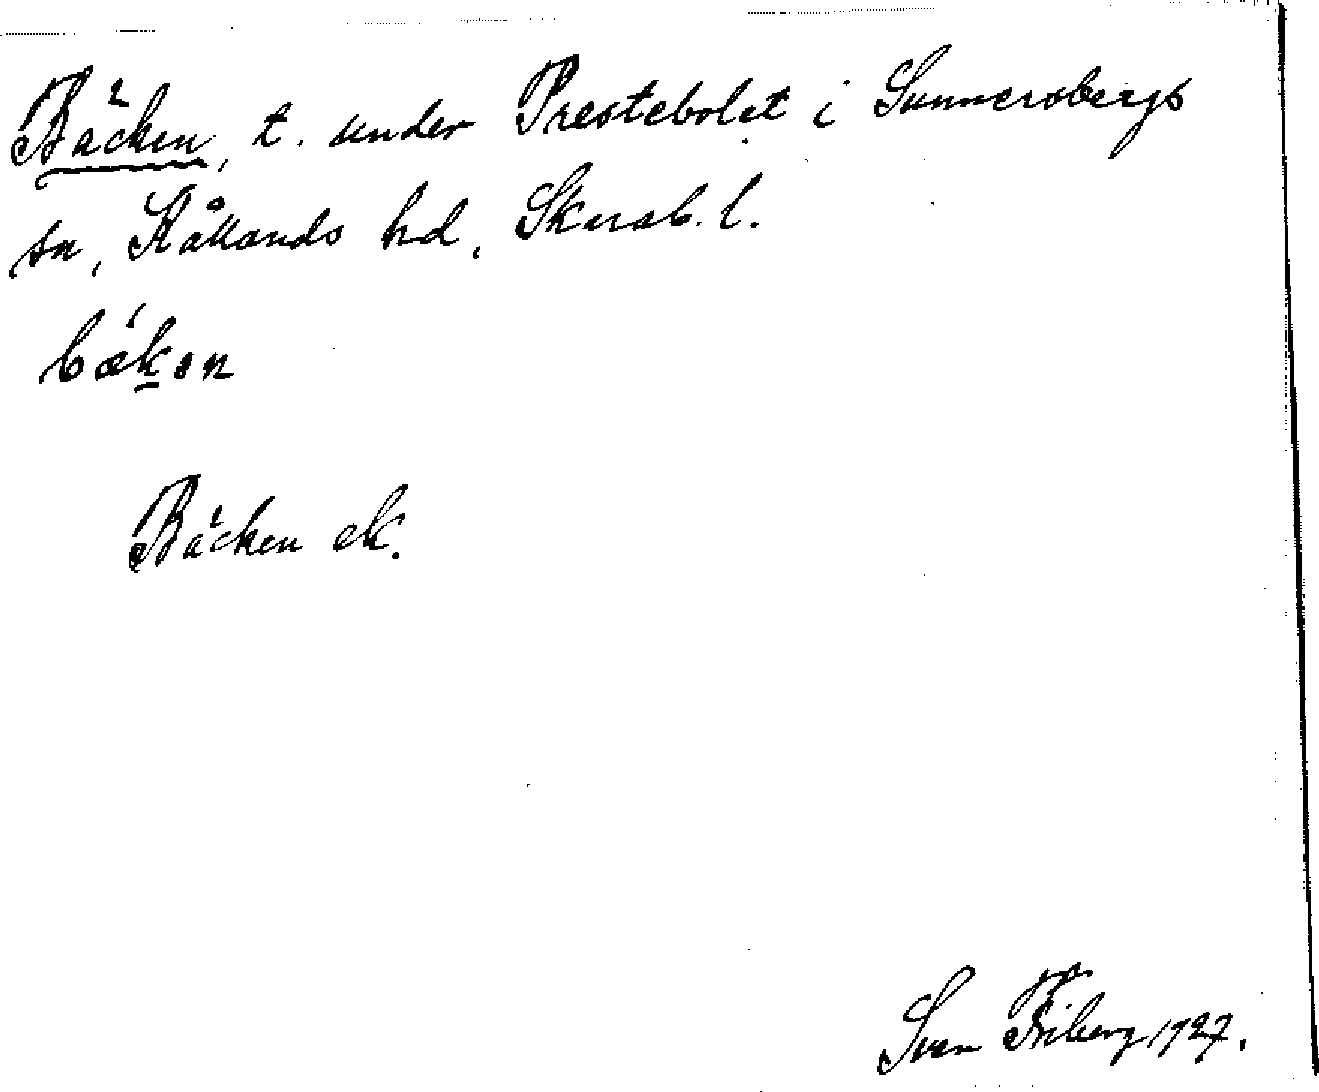 Bäcken, t. under Prestebolet i Sunnersbergs
sn, Kållands hd, Skarab. l.
bǽken
Bäcken ek.
Sven Friberg 1927.